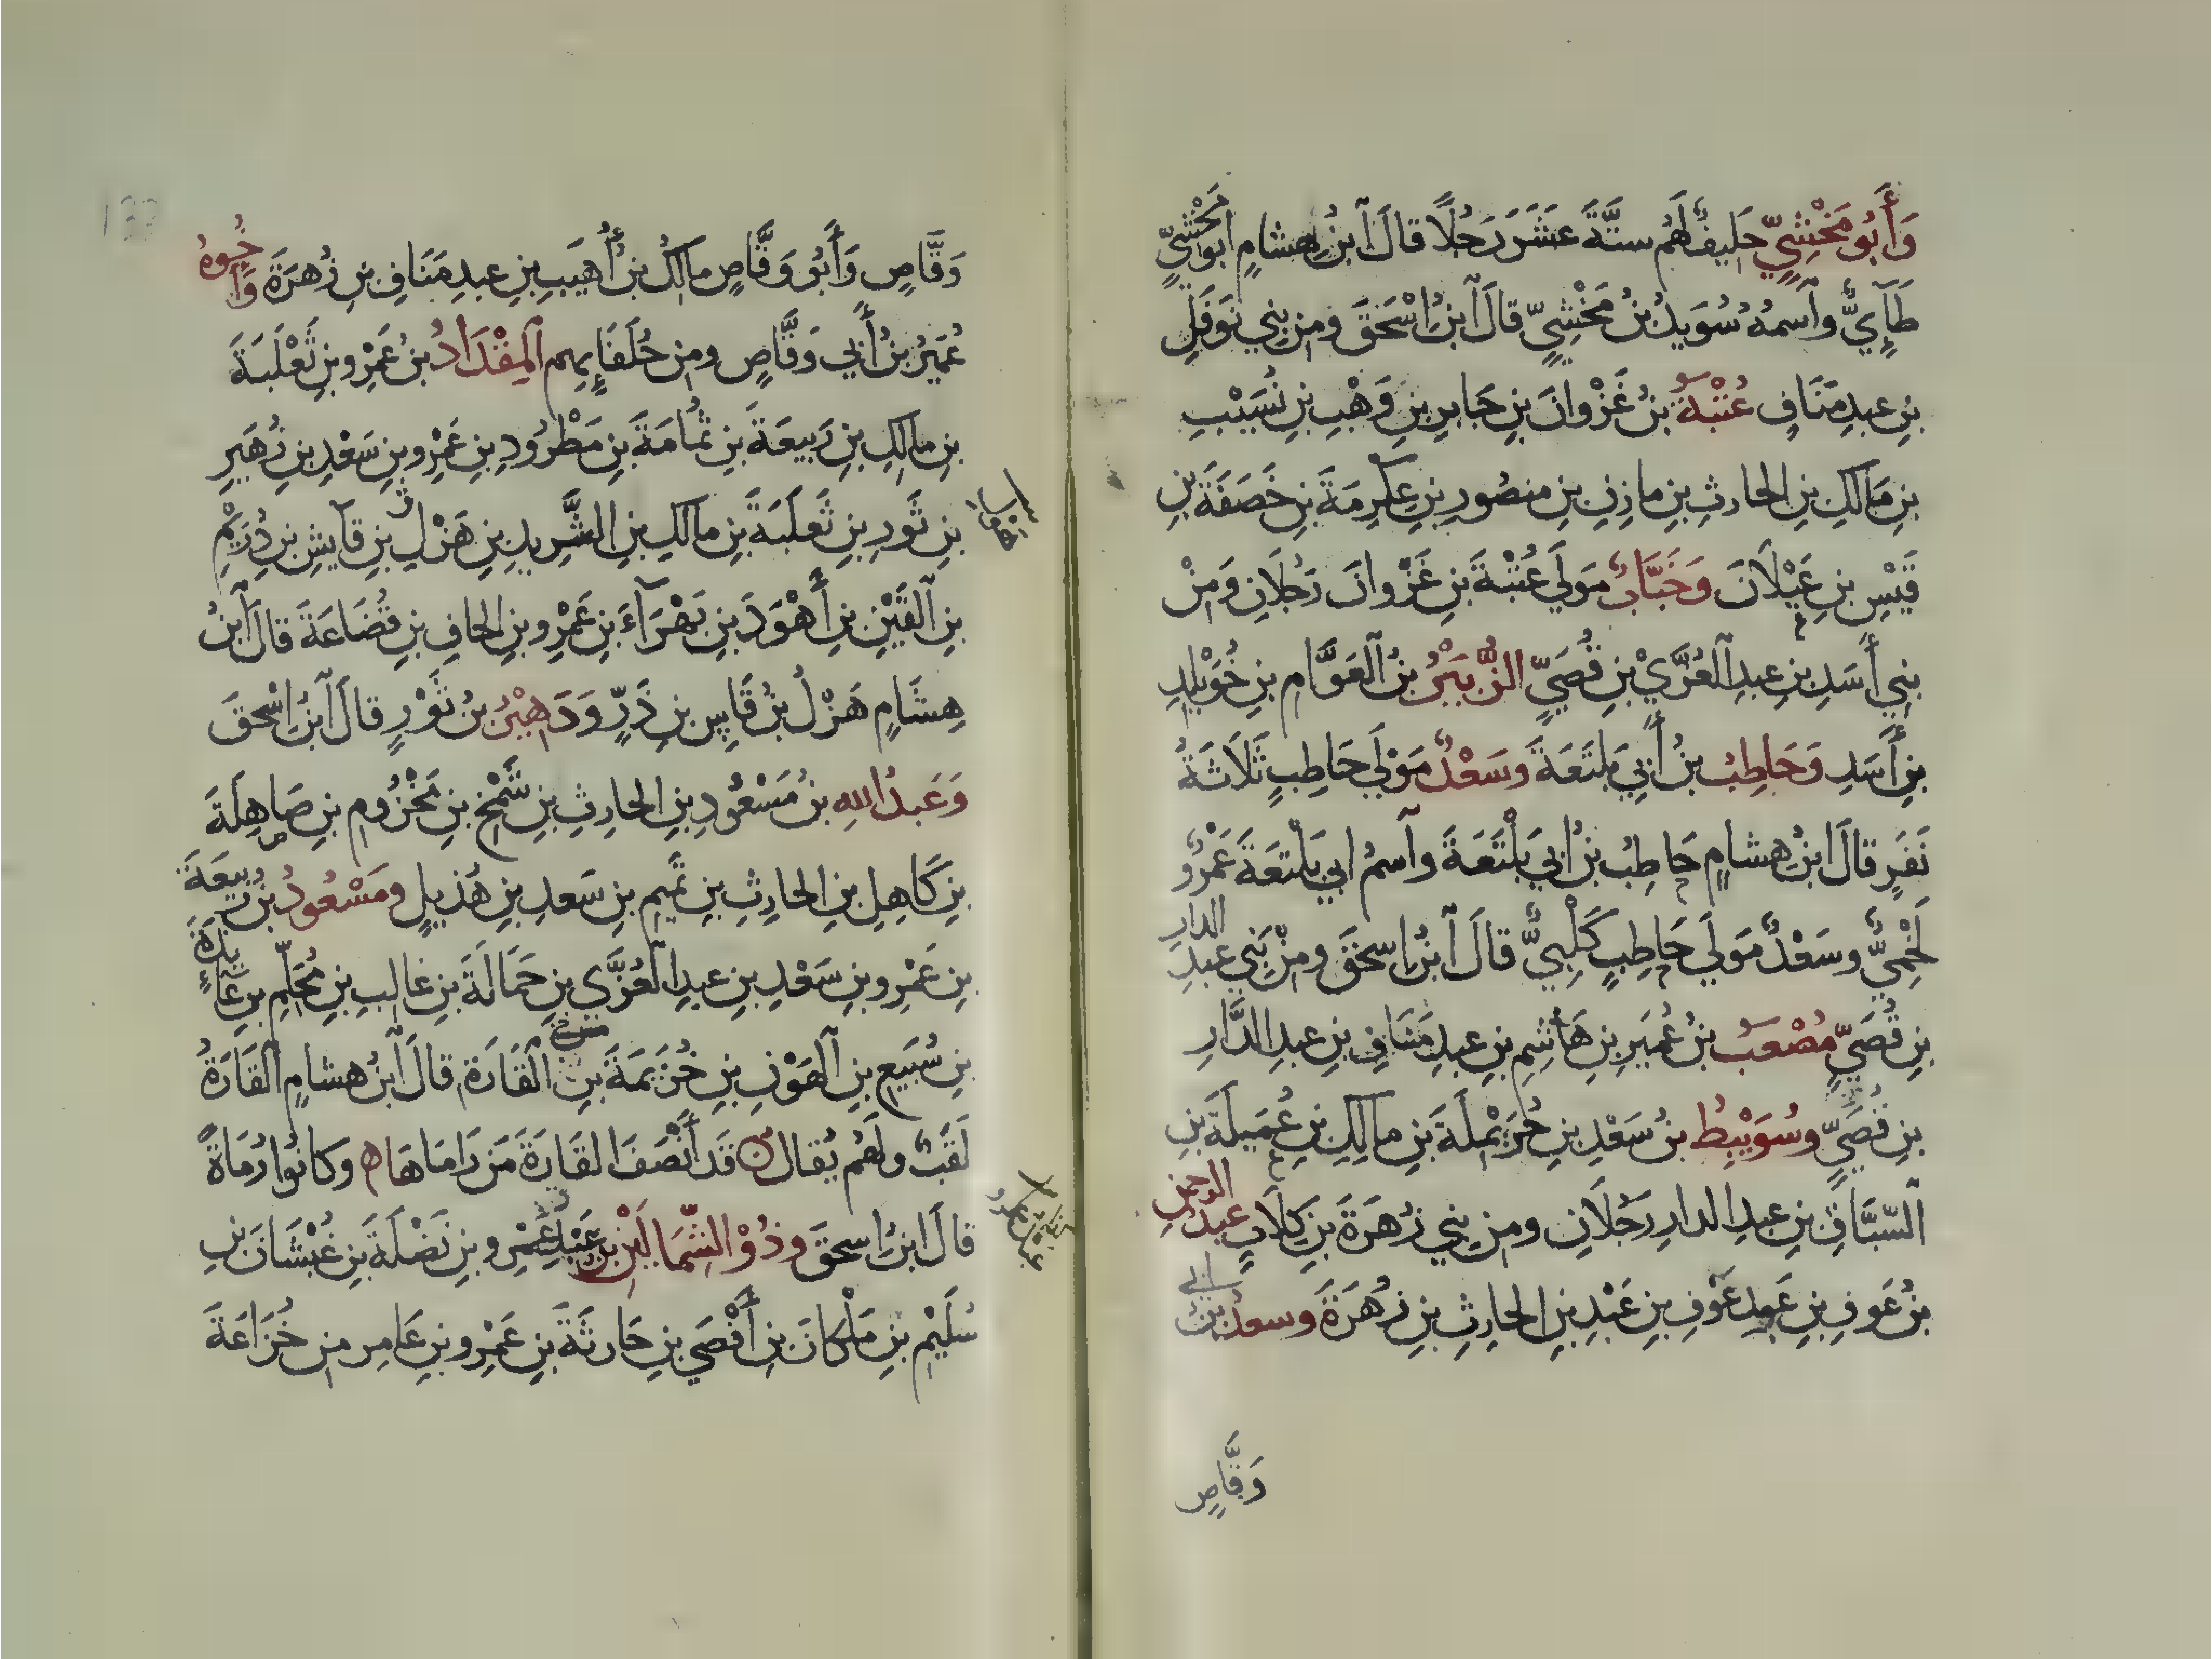 وَأَبُو مَخْشِيٍّ حَلِيفٌ لَهُم ستَّةَ عَشَرَ رَجُلًا قالَ ٱبنُ هِشامٍ ابو مَخْشِيٍّ
طَآءِيٌّ وٱسمُهُ سُوَيدُ بنُ مَخْشِيٍّ قالَ ٱبنُ اسْحَقَ ومِن بني نَوفَلِ
بنِ عبدِ مَنَافٍ عُتْبَةُ بنُ غَزْوانَ بنِ جَابرِ بنِ وَهْبِ بنِ نُسَيْبِ
بنِ مَالكِ بنِ الحارثِ بنِ مازنِ بنِ منصُورِ بنِ عِكرِمَةَ بنِ خَصَفَةَ بنِ
قَيْسِ بنِ عَيْلَانَ وَخَبَّابٌ مَولَي عُتْبَةَ بنِ غَزْوانَ رَجُلَانِ وَمِنْ
بَنِي أَسَدِ بنِ عبدِ ٱلعُزَّيْ بنِ قُصَيٍّ الزُّبَيْرُ بنُ ٱلعَوَّامِ بنِ خُوَيْلِدِ
بنِ أَسَدٍ وَحَاطِبُ بنُ أَبِي بَلتَعَةَ وسَعْدٌ مَوْلَي حَاطِبٍ ثَلَاثَةُ
نَفَرٍ قالَ ابنُ هشامٍ حَاطِبُ بنُ ابي بَلْتَعَةَ وٱسمُ ابي بَلْتعَةَ عَمْرٌو
لَخْمِيٌّ وسَعْدٌ مَولَي حَاطِبٍ كَلْبِيٌّ قالَ ٱبنُ اسحَقَ ومِنْ بَنِي عبدِ الدارِ
بنِ قُصَيٍّ مُصْعَبُ بنُ عُمَيرِ بنِ هَاشِمِ بنِ عبدِ مَنَافِ بنِ عبدِ الدَّارِ
بنِ قُصَيٍّ وسُوَيْبِطُ بنُ سَعْدِ بنِ حُرَيْمِلَةَ بنِ مالِكِ بنِ عُمَيلَةَ بنِ
ٱلسَّبَّاقِ بنِ عبدِ الدارِ رَجُلَانِ ومِن بني زُهرَةَ بنِ كِلَابٍ عبدُ الرحمنِ
بنُ عَوفِ بنِ عَبدِ عَوْفِ بنِ عَبْدِ بنِ الحارِثِ بنِ زُهرَةَ وسعدُ بنُ ابي
وَقَّاصٍ
وَقَّاصٍ وَأَبُو وَقَّاصٍ مالكُ بنُ أُهَيبِ بنِ عبدِ مَنَافِ بنِ زُهرَةَ وأَخُوهُ
عُمَيرُ بنُ أَبي وَقَّاصٍ ومِن حُلَفَآءِهِم ٱلمِقْدَادُ بنُ عَمْرِو بنِ ثَعْلَبَةَ
بنِ مالكِ بنِ رَبيعَةَ بنِ ثُمَامَةَ بنِ مَطْرُودِ بنِ عَمْرِو بنِ سَعْدِ بنِ زُهَيرِ
بنِ ثَورِ بنِ ثَعلَبَةَ بنِ مالكِ بنِ الشَّرِيدِ بنِ هَزْلِ بنِ قآيشِ بنِ دُرَيْمِ
بنِ ٱلقَيْنِ بنِ أَهْوَدَ بنِ بَهْرَآءَ بنِ عَمْرِو بنِ الحافِ بنِ قُضَاعَةَ قالَ ٱبنُ
هِشَامٍ هَزْلُ بنُ قَاسِ بنِ ذَرٍّ وَدَهِيْرُ بنُ ثَوْرٍ قالَ ٱبنُ اسْحقَ
وَعَبدُ اللهِ بنُ مَسْعُودِ بنِ الحارِثِ بنِ شَمْخِ بنِ مَخْزُومِ بنِ صَاهِلَةَ
بنِ كَاهِلِ بنِ الحارِثِ بنِ تَمِيمِ بنِ سَعدِ بنِ هُذيلٍ ومَسْعُودُ بنُ رَبيعَةَ
بنِ عَمْرِو بنِ سَعْدِ بنِ عبدِ ٱلعُزَّى بنِ حَمَالَةَ بنِ غالِبِ بنِ مُحَلِّمِ بنِ عَآءِذَةَ
بنِ سُبَيعِ بنِ ٱلهَوْنِ بنِ خُزَيمَةَ مِن ٱلقَارَةِ قالَ ٱبنُ هشامٍ ٱلقَارَةُ
لَقَبٌ ولَهُم يُقالُ قَد أَنْصَفَ القَارَةَ مَن رَامَاهَا وكانُوا رُمَاةً
قالَ ابنُ اسحقَ وذُوْ الشِّمَالَيْنِ بن عَبْدِ عَمْرِو بنِ نَضْلَةَ بنِ غُبْشَانَ بنِ
سُلَيْمِ بنِ مَلْكَانَ بنِ أَفْصَي بنِ حَارثَةَ بنِ عَمْرِو بنِ عَامِرٍ مِن خُزَاعَةَ